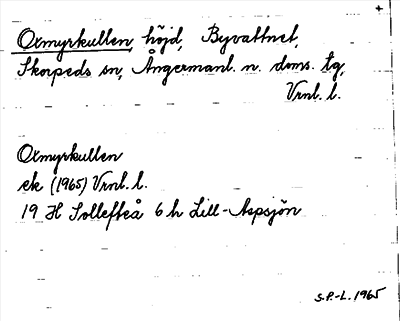 +
Oxmyrkullen, höjd, Byvattnet,
Skorpeds sn, Ångermanl. n. doms. tg,
Vrnl. l.
Oxmyrkullen
ek (1965) Vrnl. l.
19 H Sollefteå 6 h Lill-Aspsjön
S.P.-L. 1965